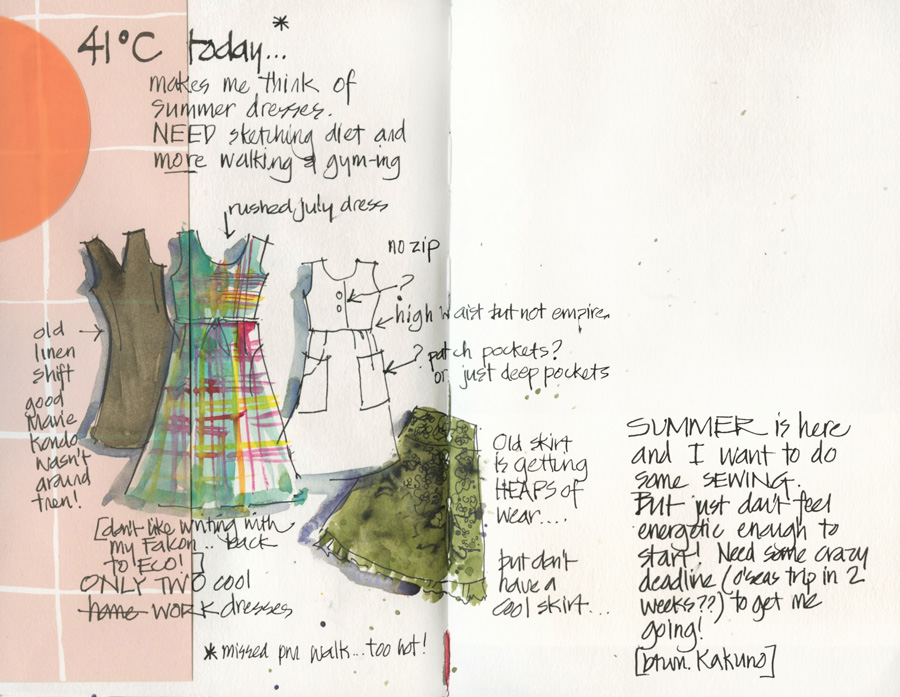 41°C today...*
makes me think of
summer dresses.
NEED sketching diet and
more walking & gym-ing
rushed July dress
no zip
?
high waist but not empire
? patch pockets?
or just deep pockets
old
linen
shift
good
Marie
Kondo
wasn't
around
then!
[don't like writing with
my Falcon.. back
to Eco!]
ONLY TWO cool
home WORK dresses
*missed pm walk...too hot!
Old skirt
is getting
HEAPS of
wear....
but don't
have a
cool skirt...
SUMMER is here
and I want to do
some SEWING.
But just don't feel
energetic enough to
start! Need some crazy
deadline (o'seas trip in 2
weeks??) to get me
going!
[btwn. Kakuno]